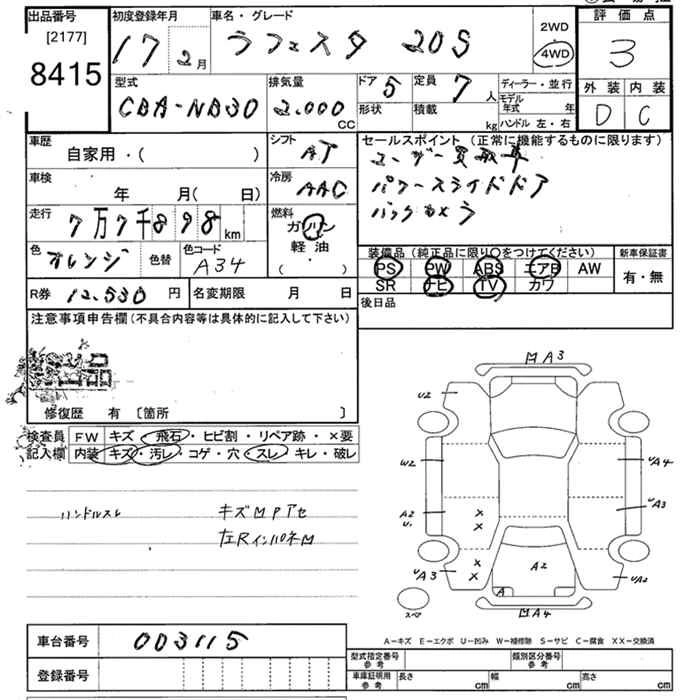 出品番号 初度登録年月 車名・グレード 評価点
[2177] 17 2月 ラフェスタ 20S 2WD 4WD 3
8415
型式 排気量 ドア 5 定員 7人 ディーラー・並行 外装 内装
CBA-NB30 2.000 CC 形状 積載 kg モデル年式 年 D C
ハンドル 左・右
車歴 シフト セールスポイント (正常に機能するものに限ります)
自家用・( ) AT ユーザー買取車
車検 冷房 パワースライドドア
年 月( 日) AAC バックカメラ
走行 燃料
7万7千898km ガソリン
色 オレンジ 色替 色コード A34 軽油 ・ ( )
装備品 (純正品に限り○をつけてください) 新車保証書
PS PW ABS エアB AW 有・無
SR ナビ TV カワ
R券 12.530円 名変期限 月 日 後日品
注意事項申告欄 (不具合内容等は具体的に記入して下さい)
修復歴 有 〔箇所 〕
検査員 FW キズ ・ 飛石 ・ ヒビ割 ・ リペア跡 ・ ×要
記入欄 内装 キズ ・ 汚レ ・ コゲ ・ 穴 ・ スレ ・ キレ ・ 破レ
ハンドルスレ キズMPアセ
左RインパネM
MA3
U2
W2 UA4
A2 U. UA3
× ×
× × A2
UA3 A UA2
スペア MA4
A-キズ E-エクボ U-凹み W-補修跡 S-サビ C-腐食 XX-交換済
車台番号 003115
登録番号
型式指定番号 参考 類別区分番号 参考
車庫証明用 参考 長さ cm 幅 cm 高さ cm